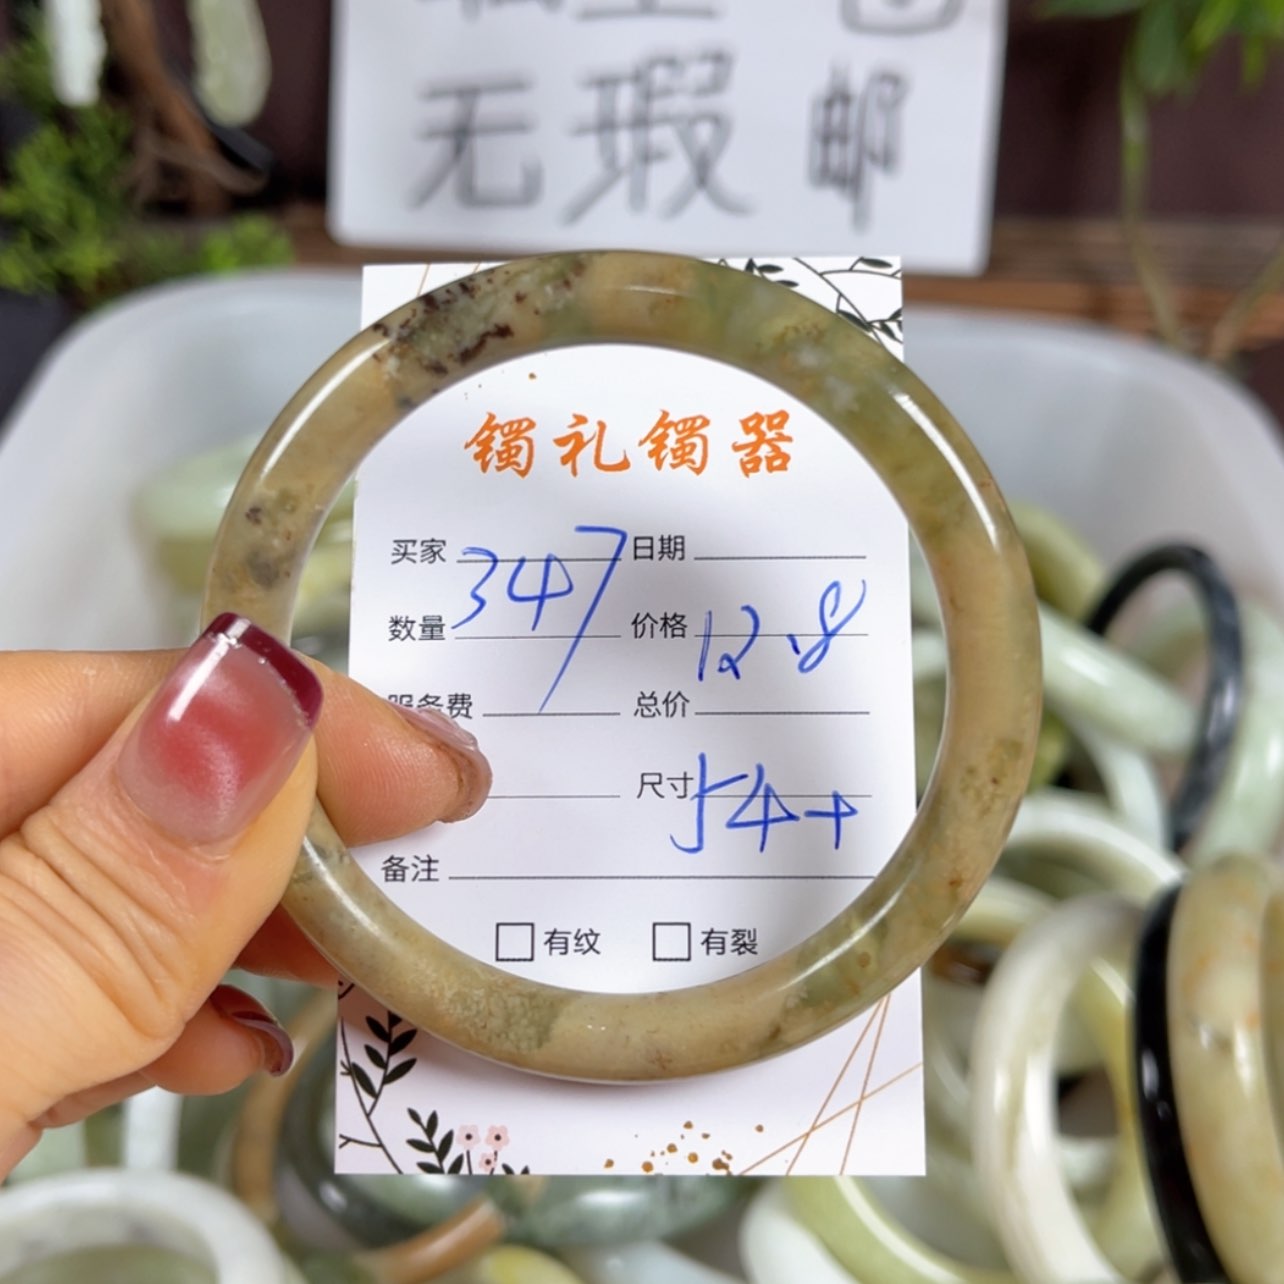 无瑕 邮
镯礼镯器
买家 347 日期
数量 价格 12.8
服务费 总价
尺寸 54+
备注
有纹 有裂